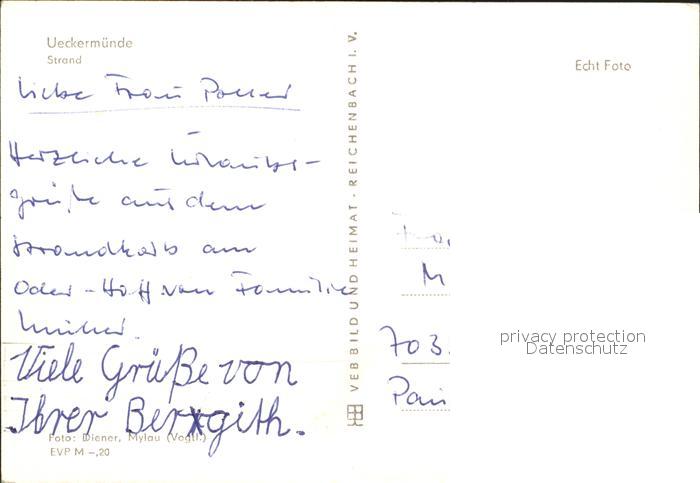 Ueckermünde
Strand
Echt Foto
Liebe Frau
Herzliche Urlaubs-
grüße aus dem
Strandkorb am
Oder-Haff von Familie
Viele Grüße von
Ihrer Bergith.
Foto: Diener, Mylau (Vogtl.)
EVP M -,20
VEB BILD UND HEIMAT · REICHENBACH I. V.
M
703
privacy protection
Datenschutz